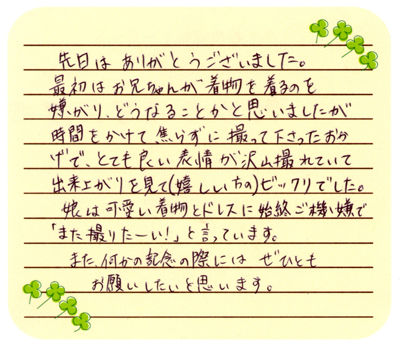 先日は ありがとうございました。
最初はお兄ちゃんが着物を着るのを
嫌がり、どうなることかと思いましたが
時間をかけて、焦らずに撮って下さったおか
げで、とても良い表情が沢山撮れていて
出来上がりを見て(嬉しい方の)ビックリでした。
娘は可愛い着物とドレスに始終ご機嫌で
「また撮りたーい！」と言っています。
また、何かの記念の際には ぜひとも
お願いしたいと思います。